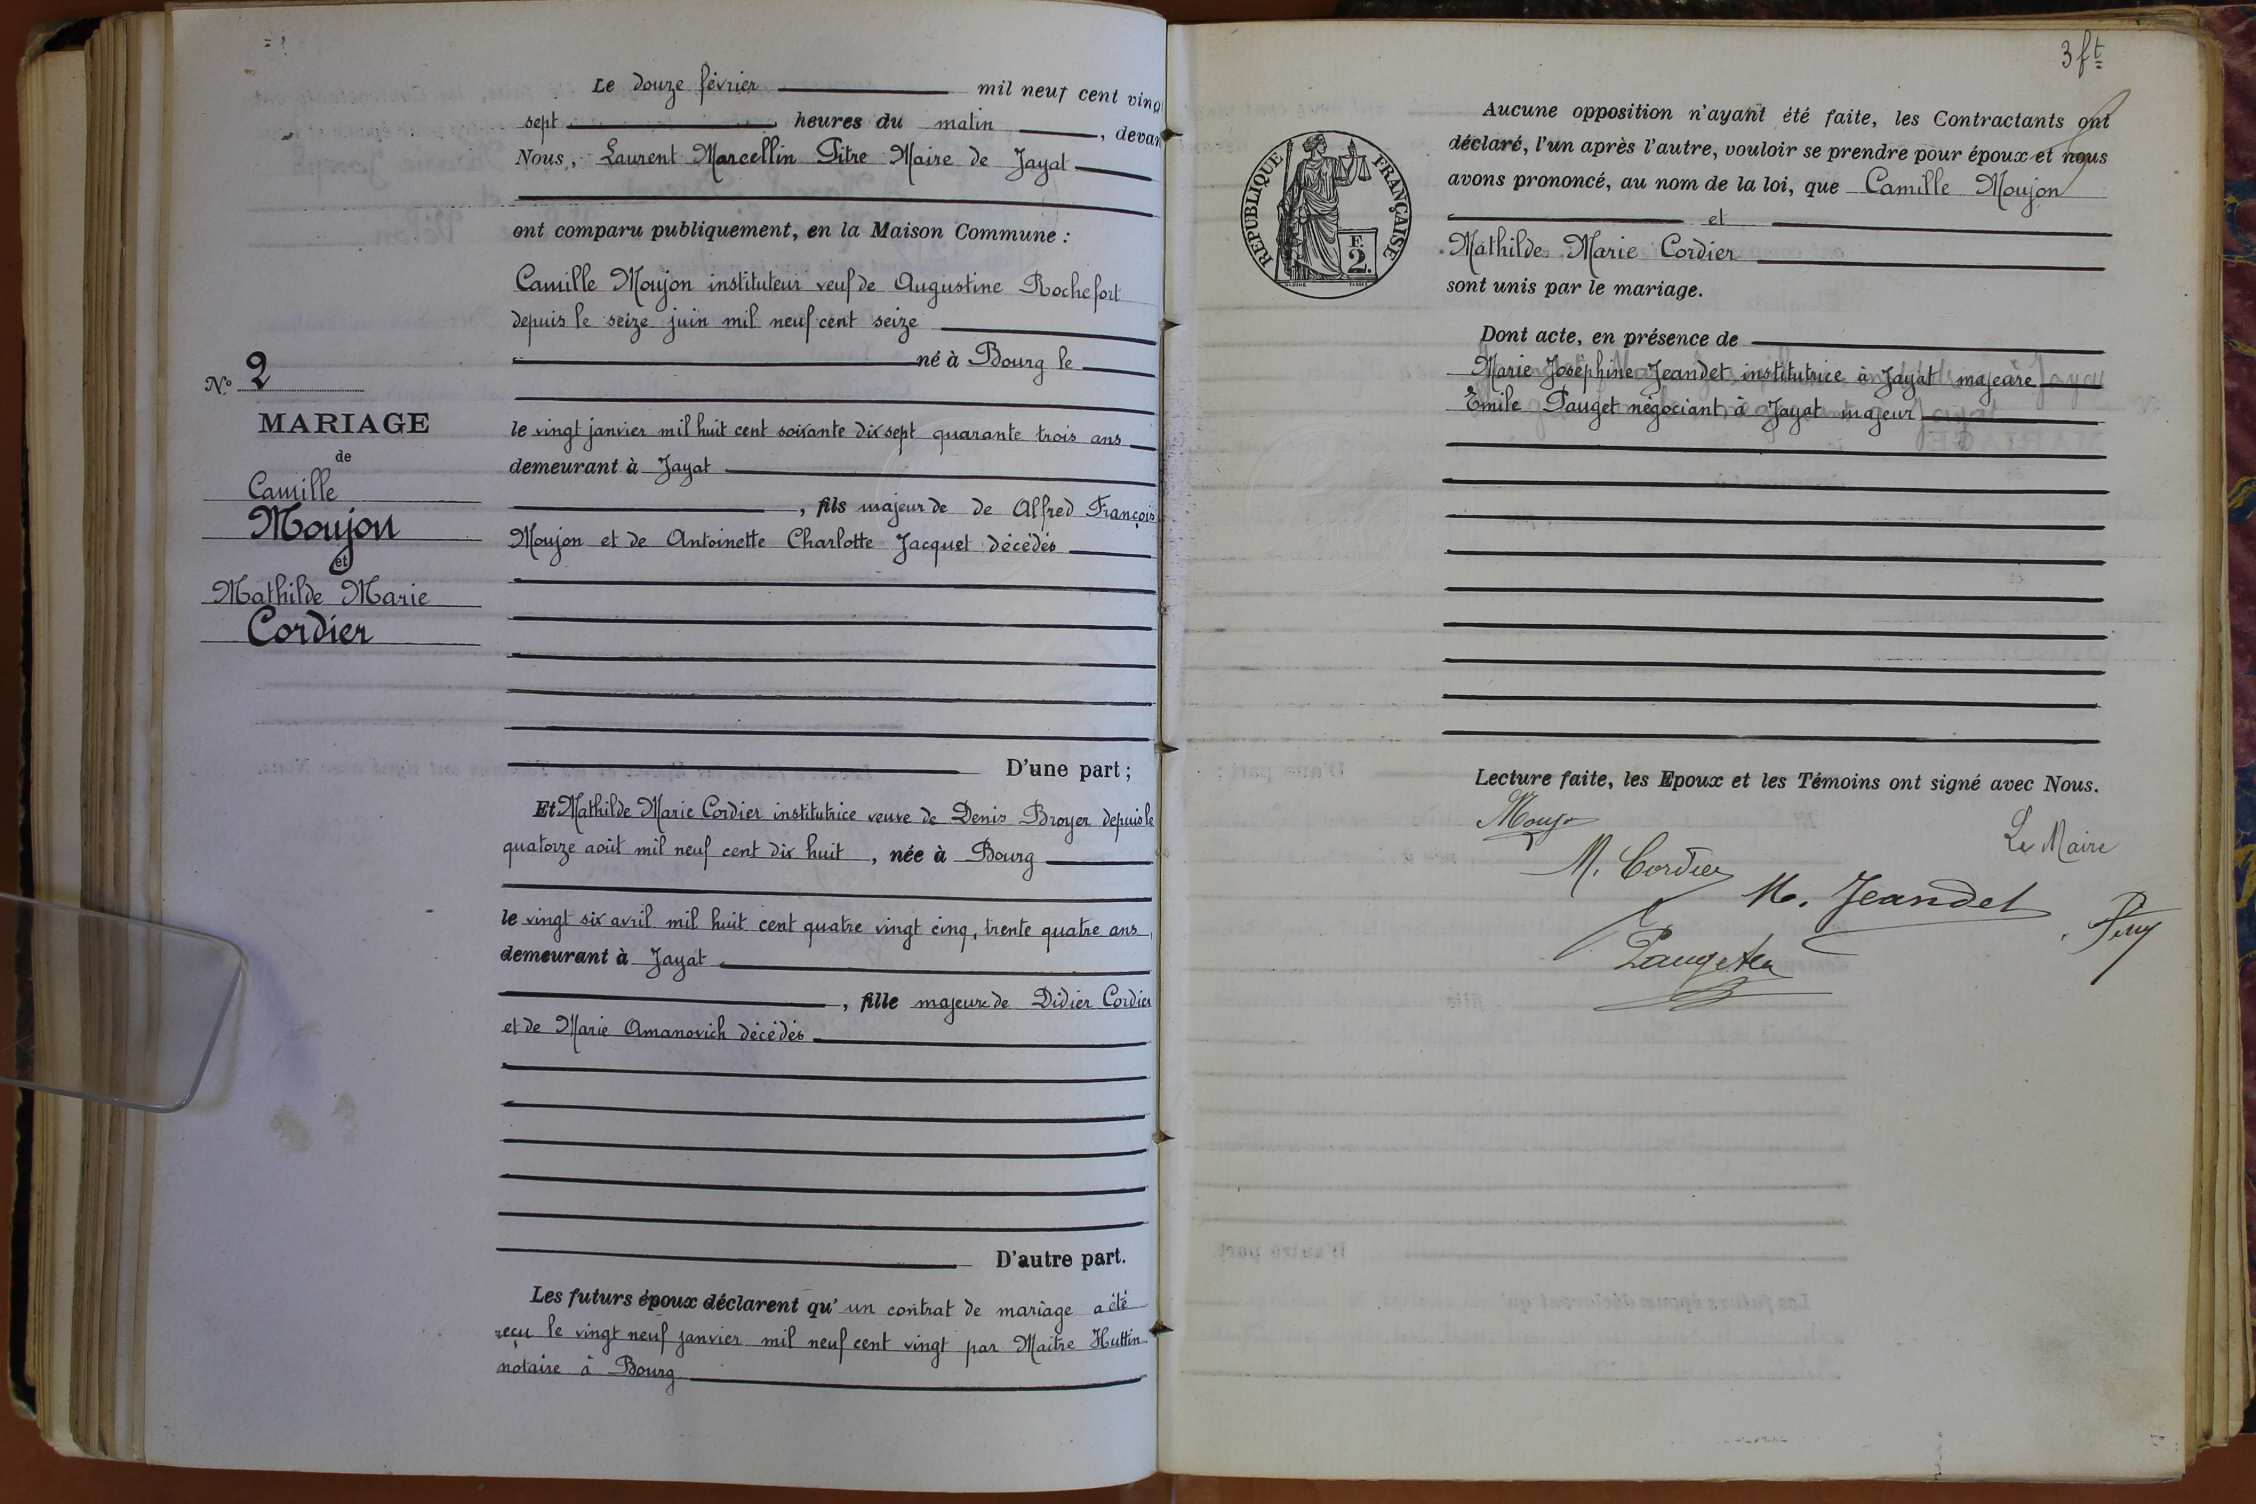 Le douze février mil neuf cent ving
sept heures du matin, devan
Nous, Laurent Marcellin Pitre Maire de Jayat
ont comparu publiquement, en la Maison Commune :
Camille Moujon instituteur veuf de Augustine Rochefort
depuis le seize juin mil neuf cent seize
né à Bourg le
le vingt janvier mil huit cent soixante dix sept quarante trois ans
demeurant à Jayat
, fils majeur de de Alfred François
Moujon et de Antoinette Charlotte Jacquet décédés
D'une part ;
Et Mathilde Marie Cordier institutrice veuve de Denis Broyer depuis le
quatorze août mil neuf cent dix huit, née à Bourg
le vingt six avril mil huit cent quatre vingt cinq, trente quatre ans,
demeurant à Jayat
, fille majeure de Didier Cordier
et de Marie Amanovich décédés
D'autre part.
Les futurs époux déclarent qu'un contrat de mariage a été
reçu le vingt neuf janvier mil neuf cent vingt par Maître Huttin
notaire à Bourg
N° 2
MARIAGE
de
Camille
Moujon
et
Mathilde Marie
Cordier
3 ft
REPUBLIQUE FRANÇAISE
F.
2.
Aucune opposition n'ayant été faite, les Contractants ont
déclaré, l'un après l'autre, vouloir se prendre pour époux et nous
avons prononcé, au nom de la loi, que Camille Moujon
et
Mathilde Marie Cordier
sont unis par le mariage.
Dont acte, en présence de
Marie Joséphine Jeandet institutrice à Jayat majeure
Emile Pauget négociant à Jayat majeur
Lecture faite, les Epoux et les Témoins ont signé avec Nous.
Le Maire
M. Cordier
M. Jeandet